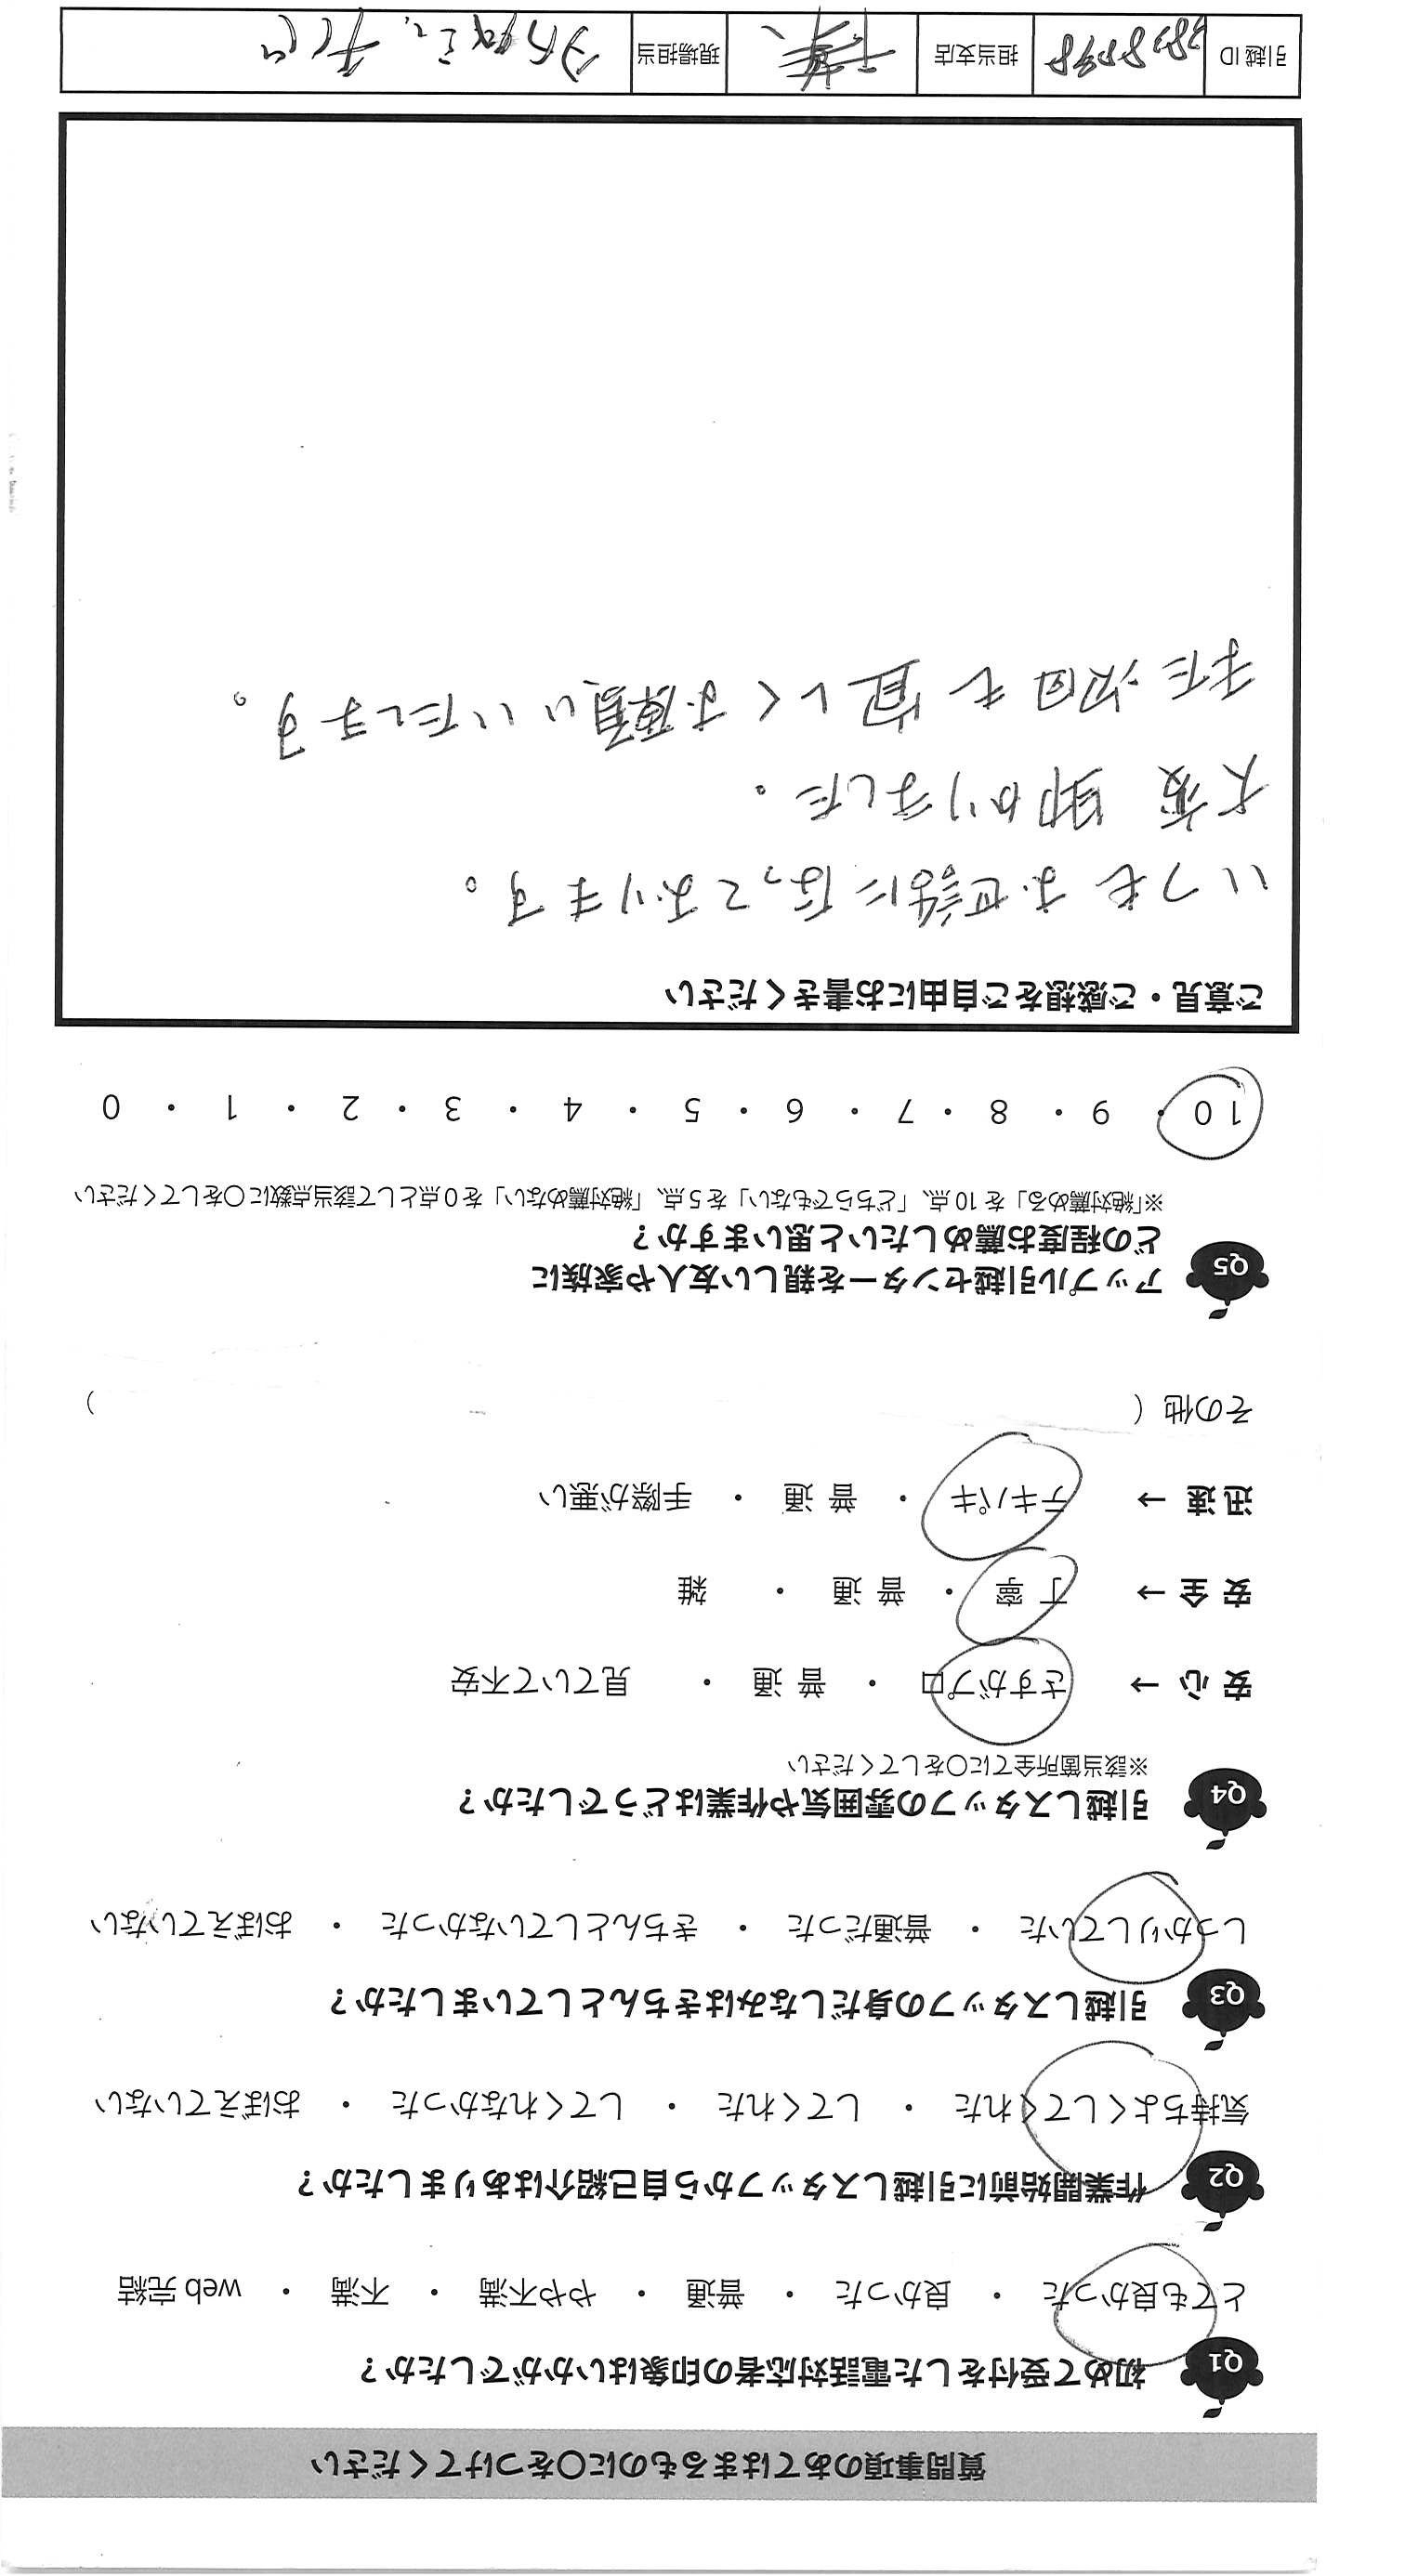 質問事項のあてはまるものに〇をつけてください
Q1 初めて受付をした電話対応者の印象はいかがでしたか？
とても良かった ・ 良かった ・ 普通 ・ やや不満 ・ 不満 ・ web完結
Q2 作業開始前に引越しスタッフから自己紹介はありましたか？
気持ちよくしてくれた ・ してくれた ・ してくれなかった ・ おぼえていない
Q3 引越しスタッフの身だしなみはきちんとしていましたか？
しっかりしていた ・ 普通だった ・ きちんとしていなかった ・ おぼえていない
Q4 引越しスタッフの雰囲気や作業はどうでしたか？
※該当箇所全てに〇をしてください
安心 → さすがプロ ・ 普通 ・ 見ていて不安
安全 → 丁寧 ・ 普通 ・ 雑
迅速 → テキパキ ・ 普通 ・ 手際が悪い
その他（ ）
Q5 アップル引越センターを親しい友人や家族に
どの程度お薦めしたいと思いますか？
※「絶対薦める」を10点、「どちらでもない」を5点、「絶対薦めない」を0点として該当点数に〇をしてください
10 ・ 9 ・ 8 ・ 7 ・ 6 ・ 5 ・ 4 ・ 3 ・ 2 ・ 1 ・ 0
ご意見・ご感想をご自由にお書きください
いつもお世話になっております。
大変助かりました。
また次回も宜しくお願いいたします。
引越ID 担当支店 千葉 現場担当